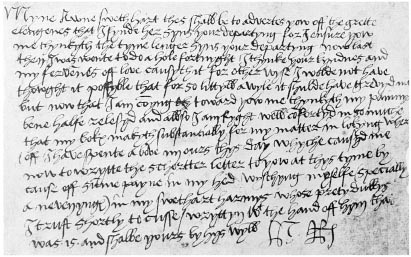 Myne awne swethart thes shall be to advertes yow off the grete
elengenes that I fynde her syns your departyng for I ensure yow
me thynkyth the tyme lenger syns your departyng now last
then I was wonte to do a hole fortnyght I thynke your kyndnes and
my fervents off love causyth it for other wyse I wolde not have
thought it possyble that for so littyll a wyle it shulde have grevyd me
but now that I am comyng toward yow me thynkyth my painnys
bene halfe relesyd and allso I am ryght well cofortyd in so muche
that my boke makyth substancially for my matter in lokyng wher
off I have spente above ours this day whyche causyd me
now to wrytte the schortter letter to yow at thys tyme by
cause off summe payne in my hed wisshyng my selfe specially
a nevenyng in my swethart harmys whose prety dukkys
I trust shortly to cusse wryttyn w^t the hand off hym that
was is and shalbe yours by hys wyll